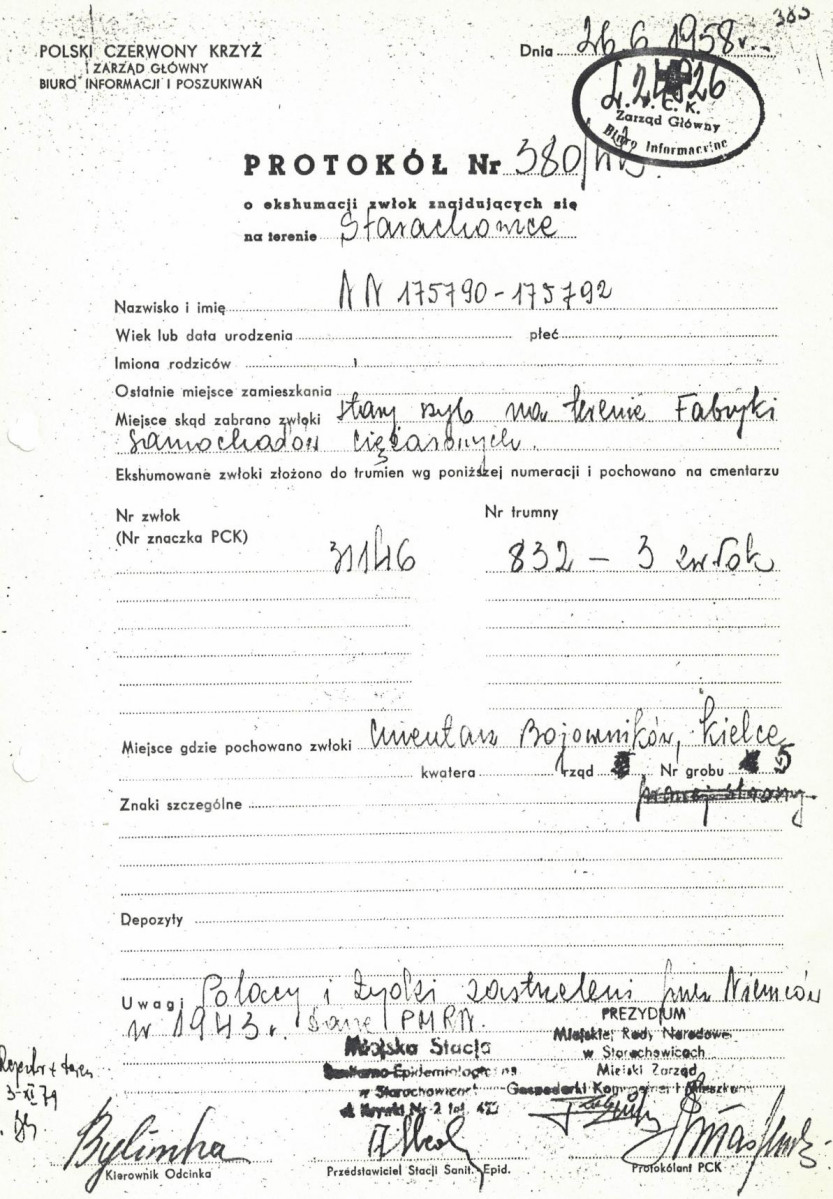 380
POLSKI CZERWONY KRZYŻ
ZARZĄD GŁÓWNY
BIURO INFORMACJI I POSZUKIWAŃ
Dnia 26.6.1958 r.
P. C. K.
Zarząd Główny
Biuro Informacyjne
PROTOKÓŁ Nr 380
o ekshumacji zwłok znajdujących się
na terenie Starachowice
Nazwisko i imię NN 175790-175792
Wiek lub data urodzenia płeć
Imiona rodziców
Ostatnie miejsce zamieszkania
Miejsce skąd zabrano zwłoki stary szyb na terenie Fabryki
Samochodów Ciężarowych.
Ekshumowane zwłoki złożono do trumien wg poniższej numeracji i pochowano na cmentarzu
Nr zwłok
(Nr znaczka PCK)
Nr trumny
31146
832 - 3 zwłok
Miejsce gdzie pochowano zwłoki Cmentarz Bojowników, Kielce
kwatera rząd Nr grobu 5
Znaki szczególne
Depozyty
Uwagi Polacy i Żydzi zastrzeleni przez Niemców
w 1943 r. Dane PMRN.
PREZYDIUM
Miejskiej Rady Narodowe
w Starachowicach
Miejski Zarząd
Gospodarki Komunalnej i Mieszkan
Miejska Stacja
Sanitarno-Epidemiologiczna
w Starachowicach
Rejestr
3-XI 79
Kierownik Odcinka
Przedstawiciel Stacji Sanit. Epid.
Protokólant PCK